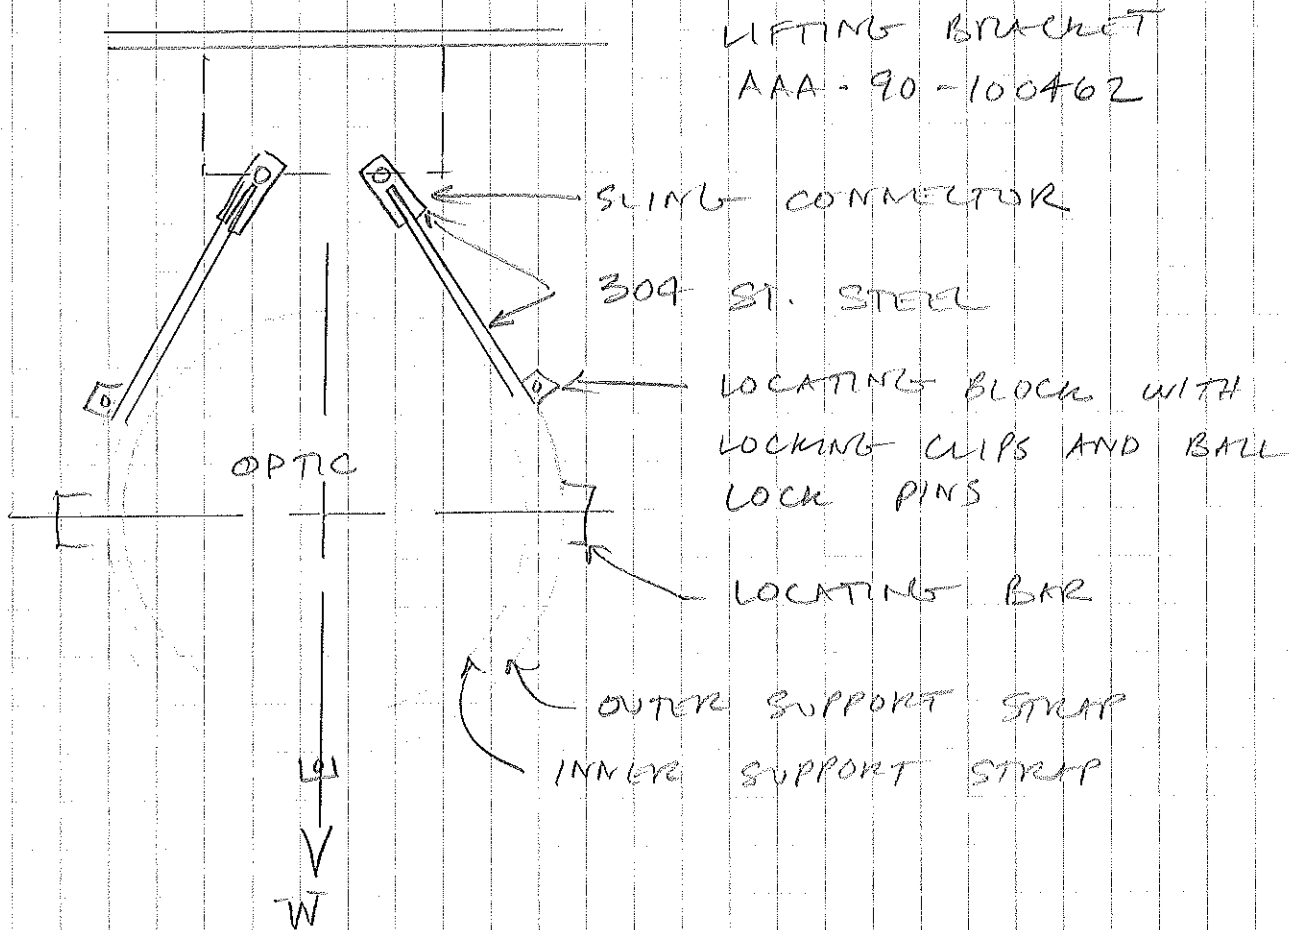 LIFTING BRACKET
AAA - 90 - 100462
SLING CONNECTOR
304 ST. STEEL
LOCATING BLOCK WITH
LOCKING CLIPS AND BALL
LOCK PINS
OPTIC
LOCATING BAR
OUTER SUPPORT STRAP
INNER SUPPORT STRAP
W